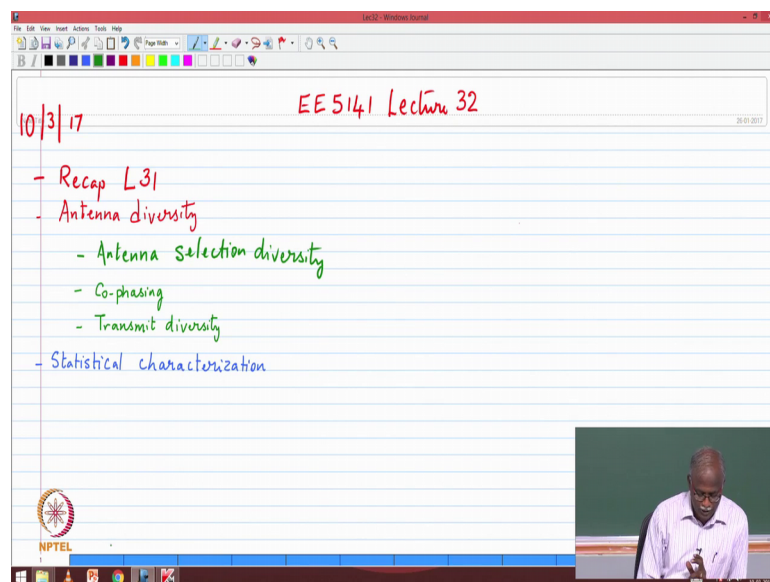 Lec32 - Windows Journal
File Edit View Insert Actions Tools Help
Page Width
B I
EE5141 Lecture 32
10/3/17
26-01-2017
- Recap L31
- Antenna diversity
- Antenna selection diversity
- Co-phasing
- Transmit diversity
- Statistical characterization
NPTEL